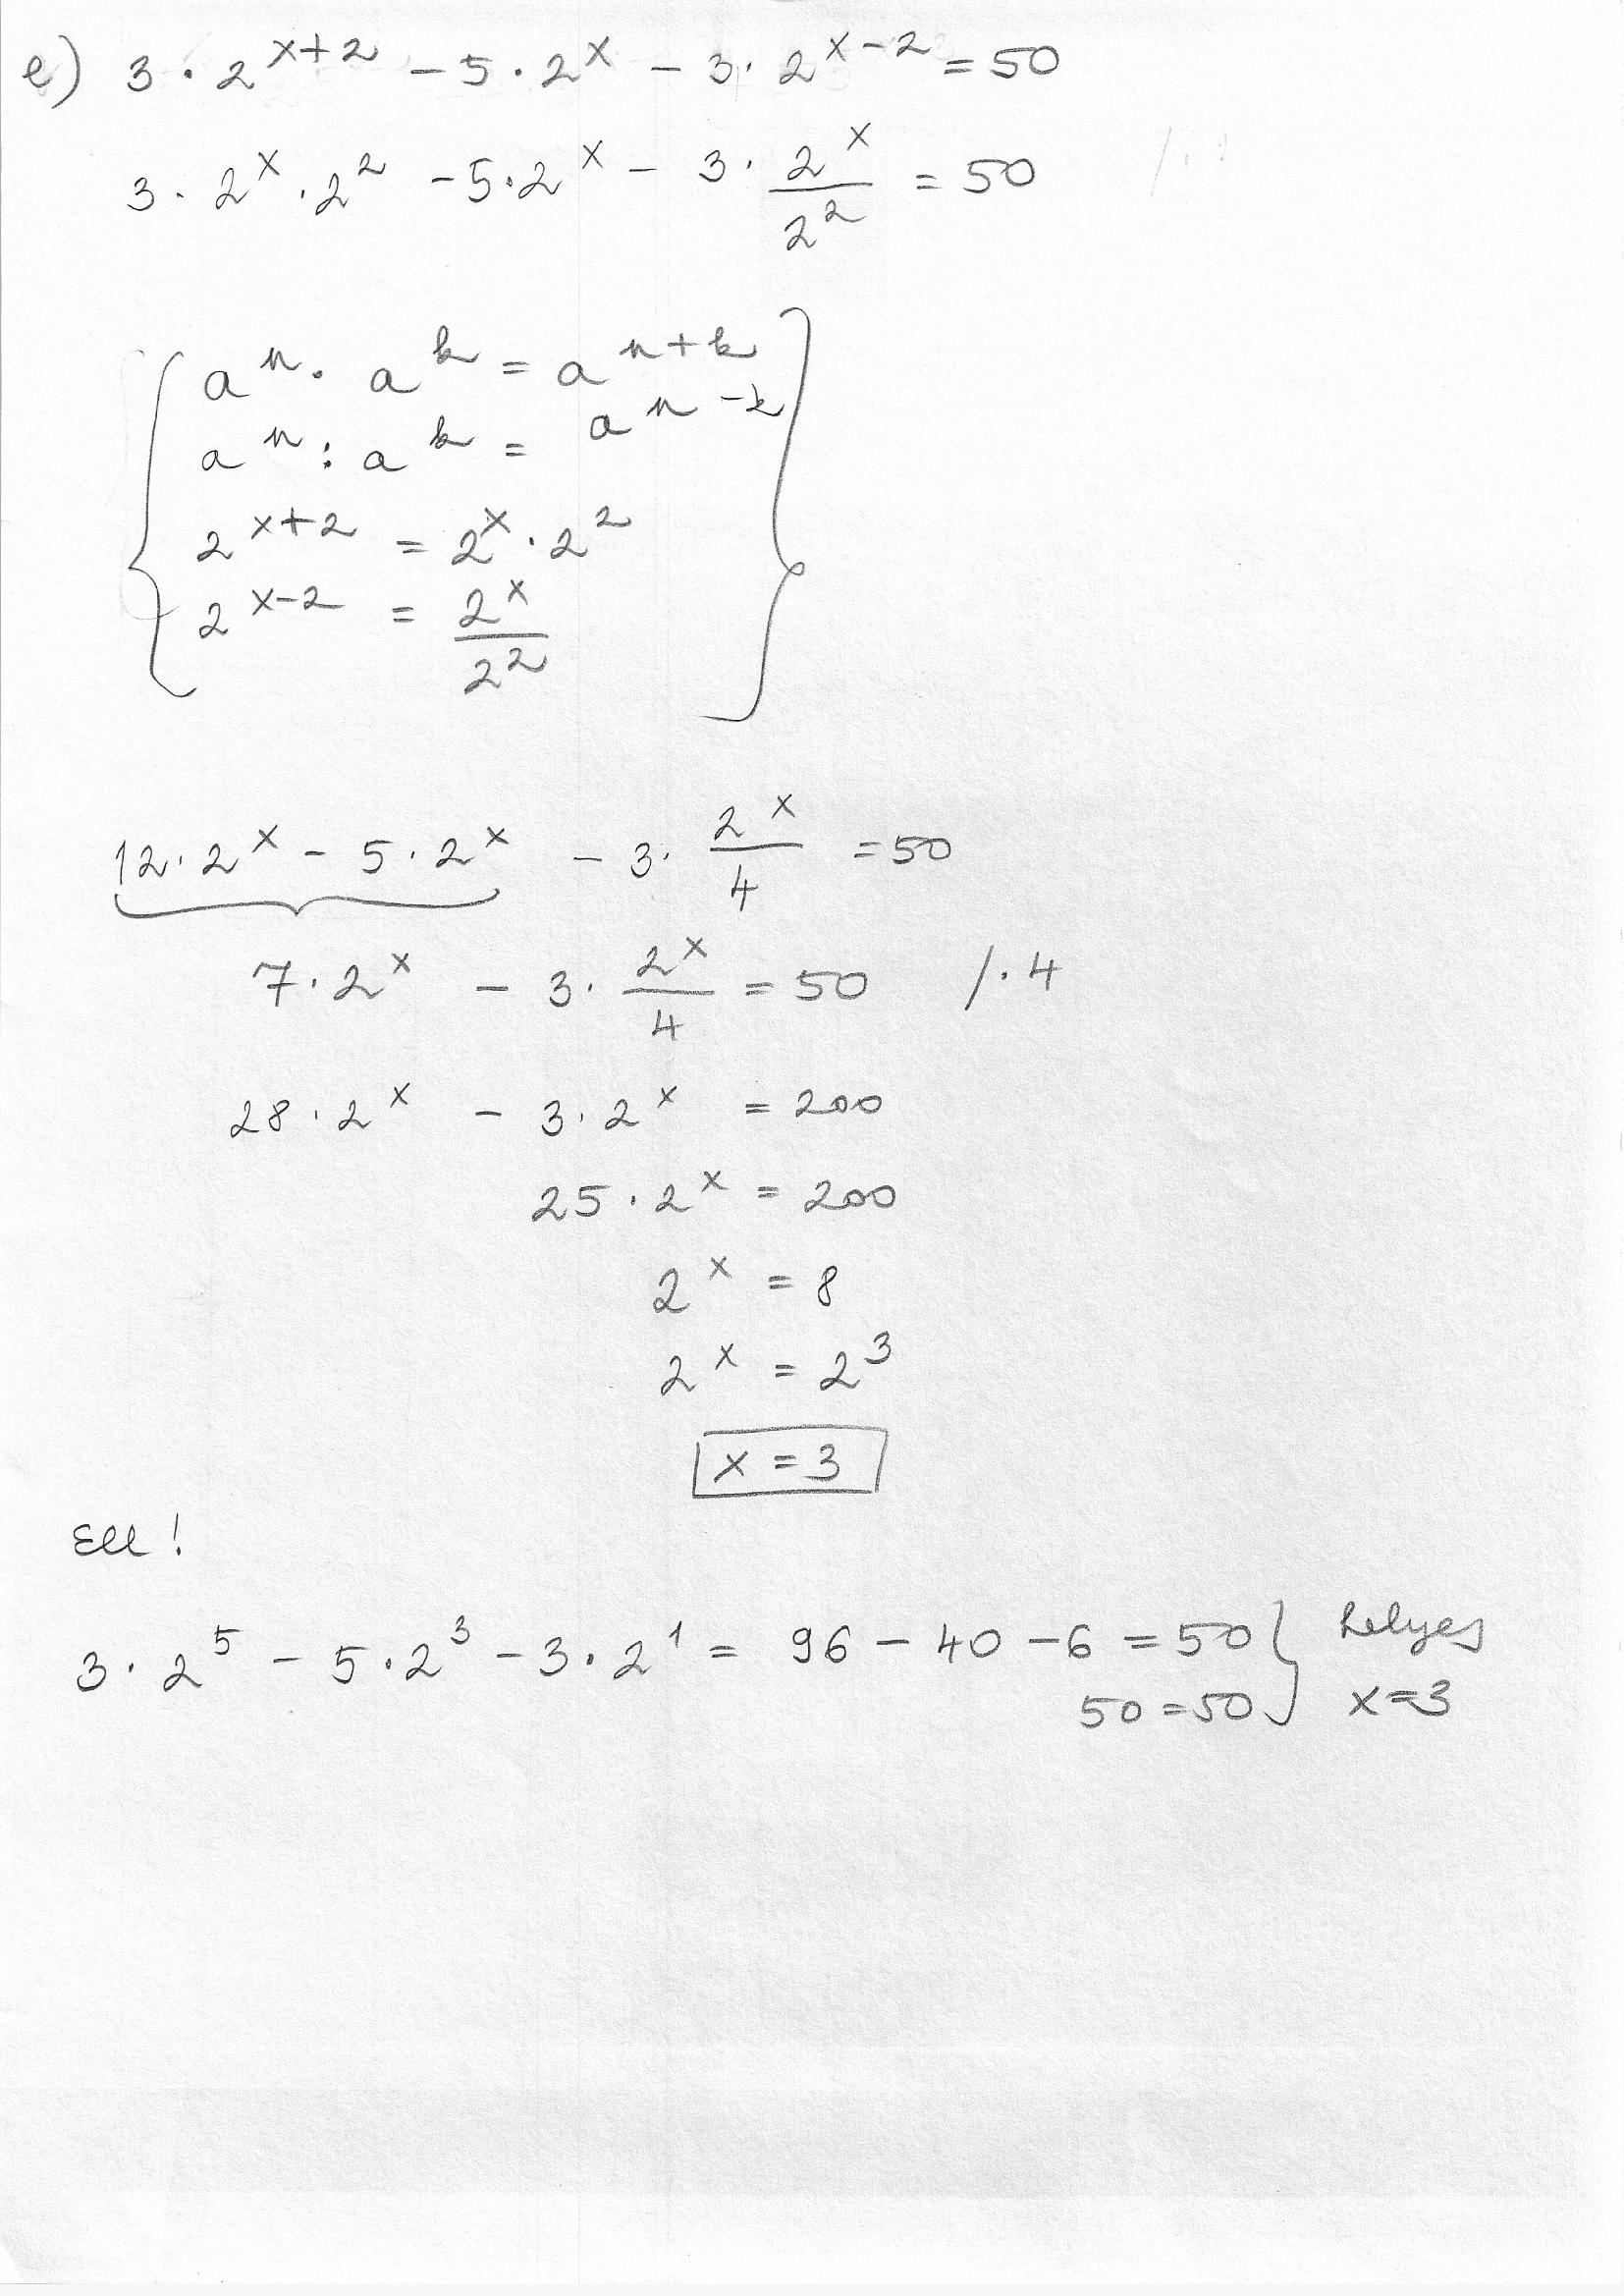 e) 3 · 2^(x+2) - 5 · 2^x - 3 · 2^(x-2) = 50
3 · 2^x · 2^2 - 5 · 2^x - 3 · 2^x/2^2 = 50
{ a^n · a^k = a^(n+k) }
a^n : a^k = a^(n-k)
2^(x+2) = 2^x · 2^2
2^(x-2) = 2^x/2^2
12 · 2^x - 5 · 2^x - 3 · 2^x/4 = 50
7 · 2^x - 3 · 2^x/4 = 50 / · 4
28 · 2^x - 3 · 2^x = 200
25 · 2^x = 200
2^x = 8
2^x = 2^3
x = 3
Ell!
3 · 2^5 - 5 · 2^3 - 3 · 2^1 = 96 - 40 - 6 = 50 } helyes
50 = 50 x = 3